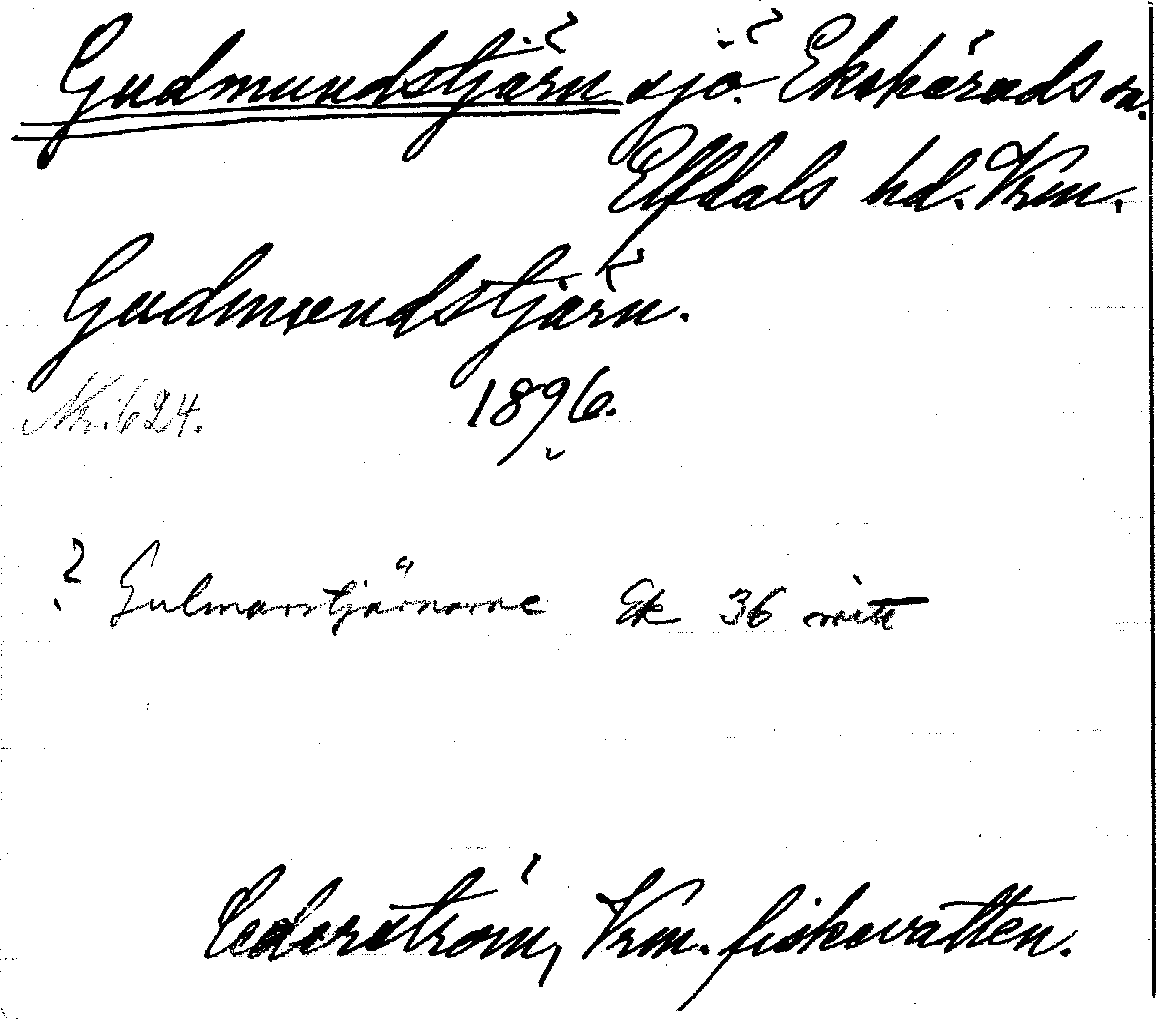 Gudmundstjärn sjö. Ekshärads sn.
Elfdals hd. Vrm.
Gudmundstjärn.
Nr. 624. 1896.
? Gulmarstjärnarne Ek 36 mitt
Cederström, Vrm. fiskevatten.